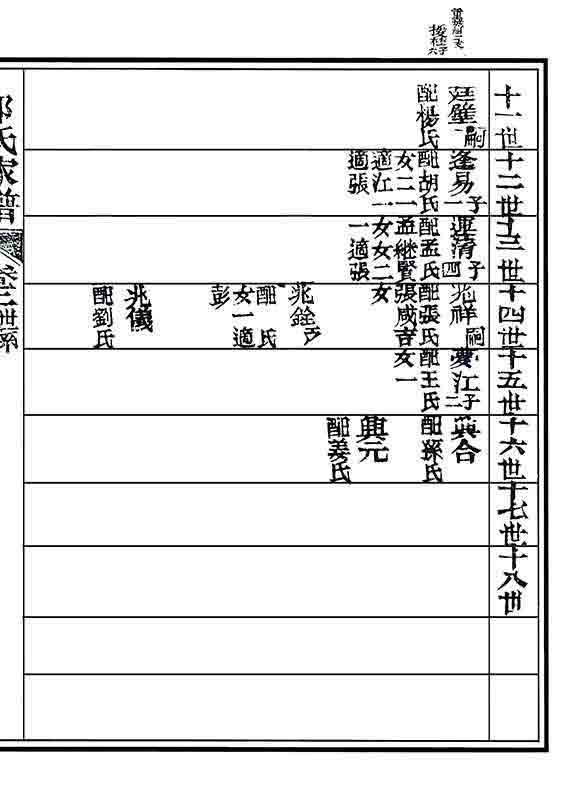 十一世
十二世
十三世
十四世
十五世
十六世
十七世
十八世
廷璧嗣
配楊氏
逢易子一
配胡氏
女二一
適江一
適張
運清子四
配孟氏
孟繼賢
女女二
一適張
兆祥嗣
配張氏
張咸吉
女
兆銓
配 氏
女一適
彭
兆儀
配劉氏
夢江子二
配王氏
女一
興合
配孫氏
興元
配姜氏
氏家譜
卷二世系